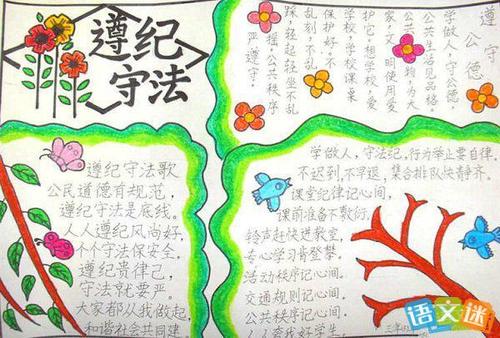 遵纪
守法
遵守
公德
学做人，守公德，
公共生活见品格。
公物，为大
，明使用爱
护它，想学校，爱
学校，学校课桌
保护好，不
乱刻，不乱
踩，轻起轻坐不乱
摇，公共秩序
严遵守。
遵纪守法歌
公民道德有规范，
遵纪守法是底线。
人人遵纪风尚好，
个个守法保安全，
遵纪贵律己，
守法就要严。
大家都从我做起，
和谐社会共同建
学做人，守法纪，行为举止要自律，
不迟到，不早退，集合排队快静齐。
课堂纪律记心间，
课前准备不敷衍。
铃声赶快进教室，
专心学习肯登攀。
活动秩序记心间，
交通规则记心间，
公共秩序记心间。
人人夸我好学生。
三年
语文迷